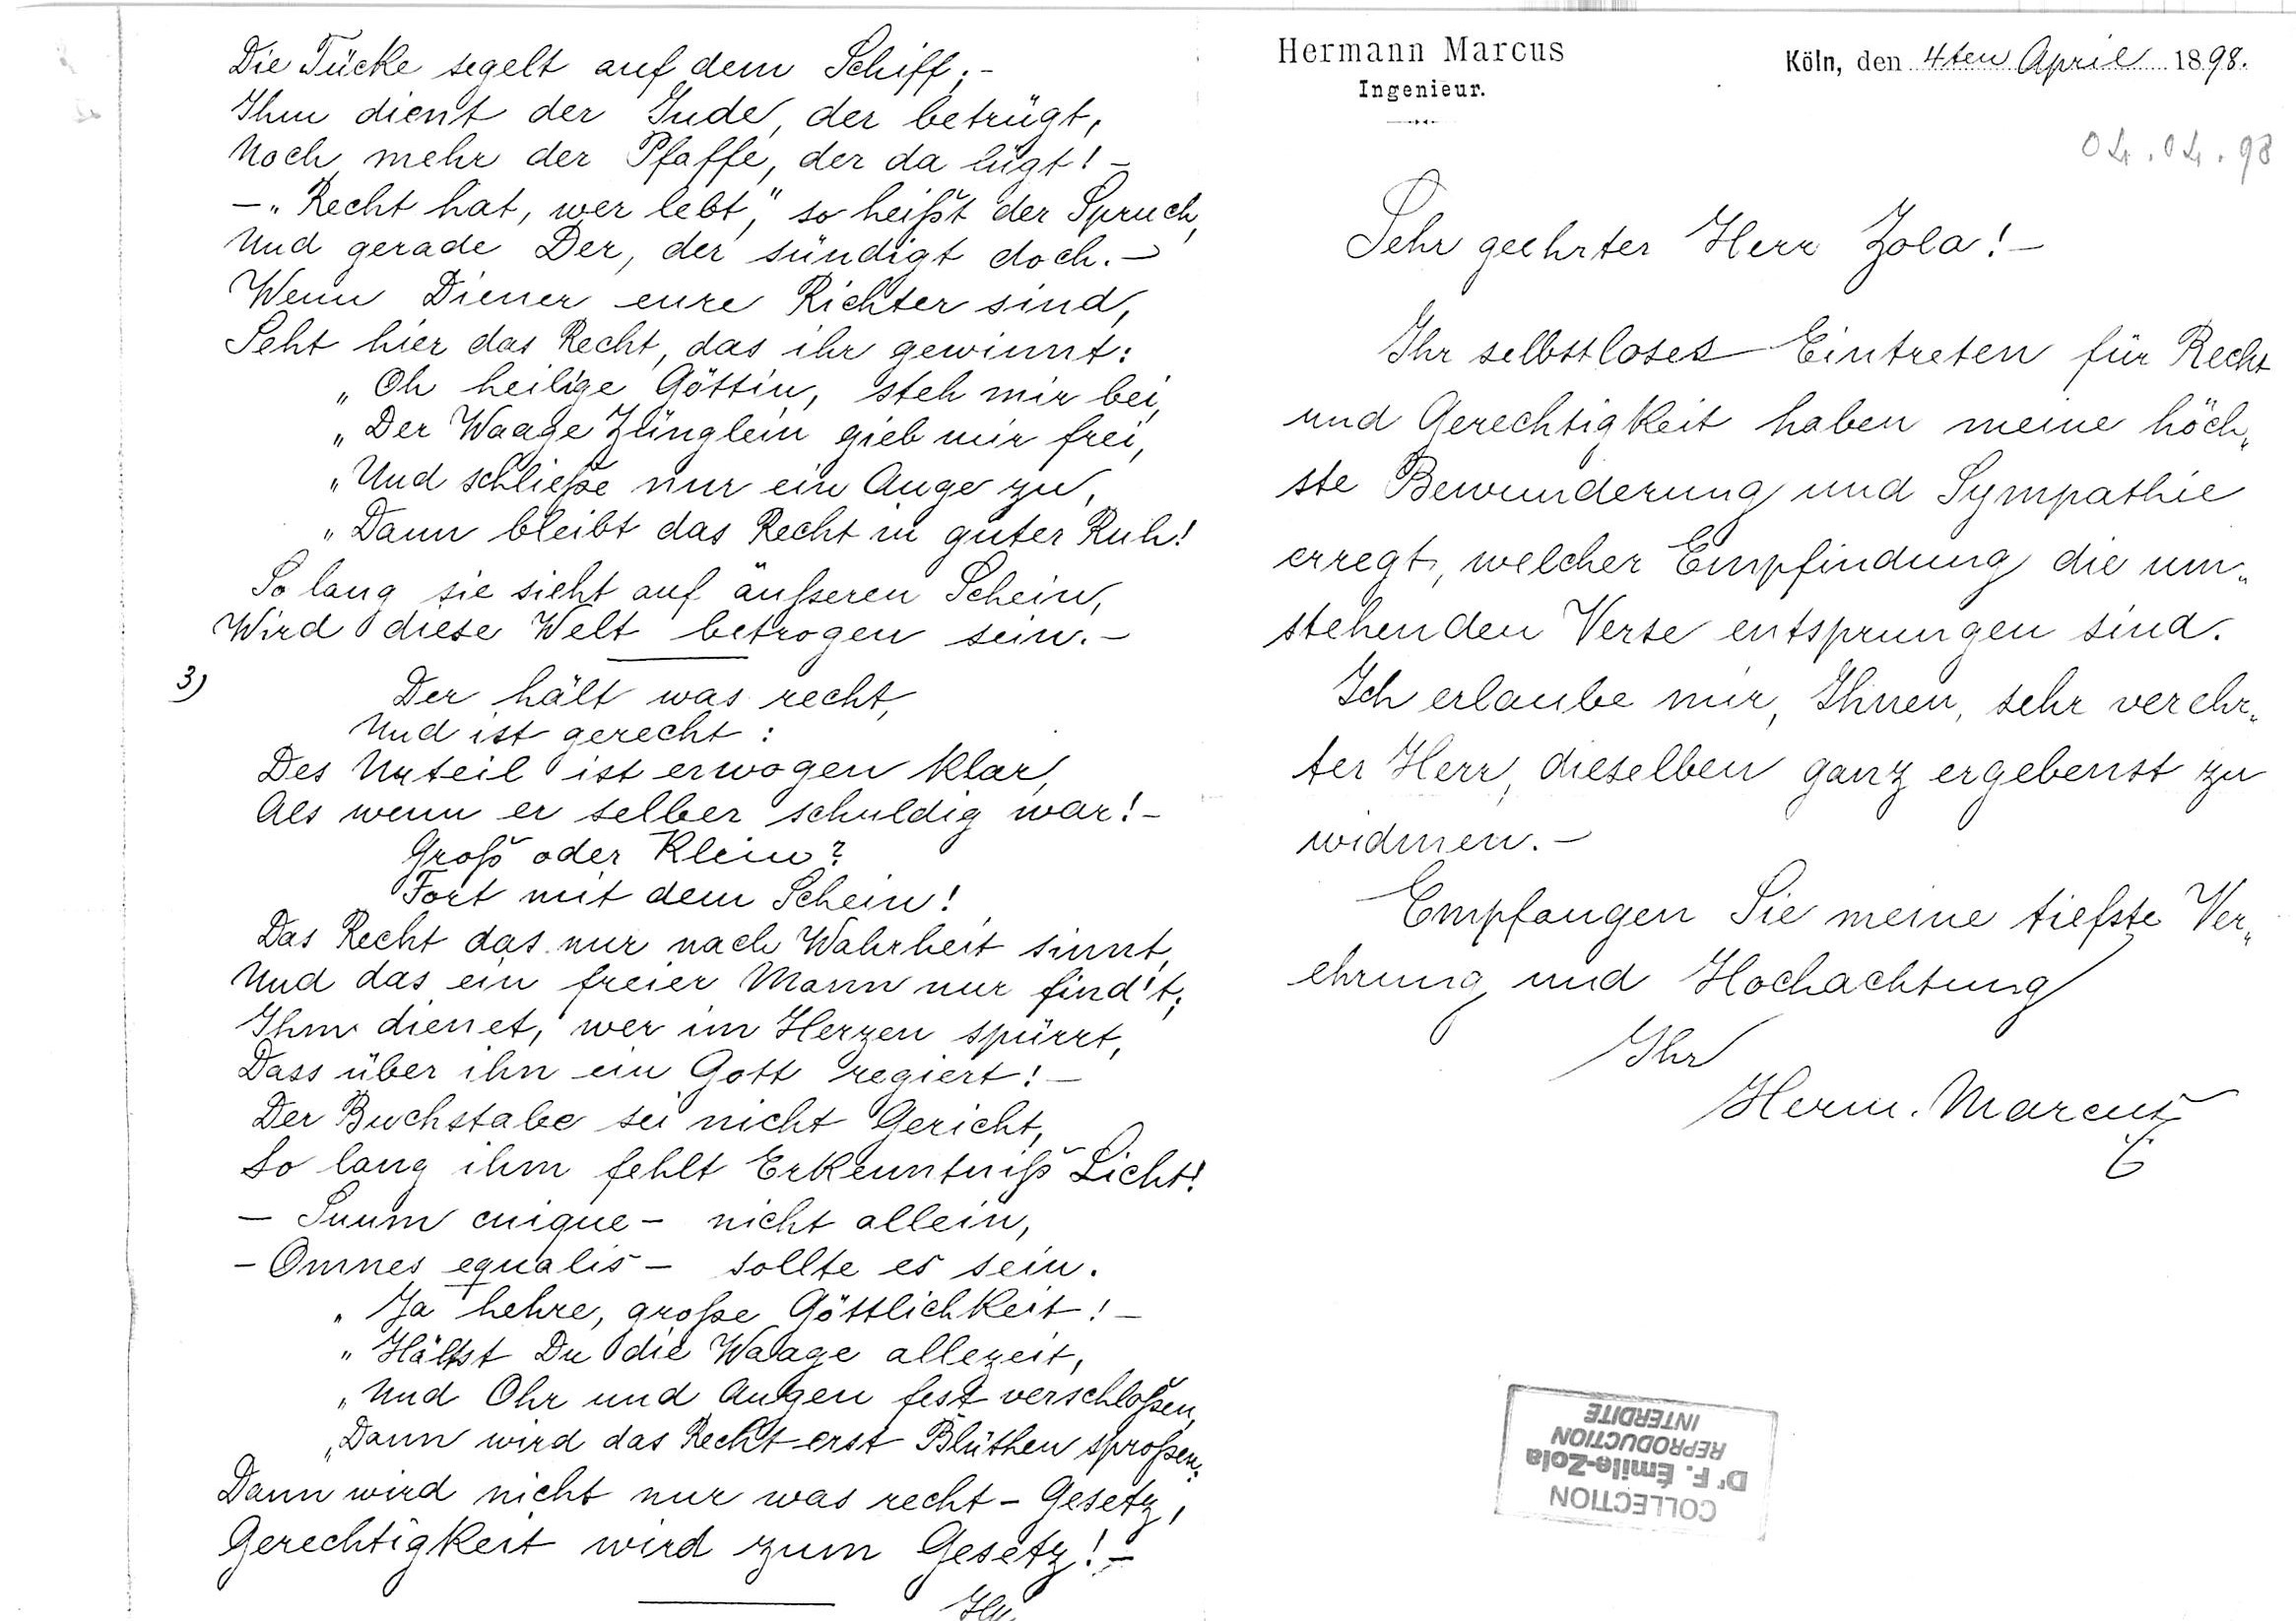 Die Tücke segelt auf dem Schiff;-
Ihm dient der Jude, der betrügt,
Noch mehr der Pfaffe, der da lügt! -
- „Recht hat, wer lebt," so heißt der Spruch,
Und gerade Der, der sündigt doch. -
Wenn Diener eure Richter sind,
Seht hier das Recht, das ihr gewinnt:
„Oh heilige Göttin, steh mir bei,
„Der Waage Zünglein gieb mir frei,
„Und schließe nur ein Auge zu,
„Dann bleibt das Recht in guter Ruh!
So lang sie sieht auf äußeren Schein,
Wird diese Welt betrogen sein. -
3)
Der hält was recht,
Und ist gerecht:
Des Urteil ist erwogen klar,
Als wenn er selber schuldig war! -
Groß oder Klein?
Fort mit dem Schein!
Das Recht das nur nach Wahrheit sinnt,
Und das ein freier Mann nur find't;
Ihm dienet, wer im Herzen spürrt,
Dass über ihn ein Gott regiert! -
Der Buchstabe sei nicht Gericht,
So lang ihm fehlt Erkenntniß Licht!
- Suum cuique - nicht allein,
- Omnes equalis - sollte es sein.
„Ja hehre, große Göttlichkeit! -
„Hältst Du die Waage allezeit,
„Und Ohr und Augen fest verschloßen,
„Dann wird das Recht erst Blüthen sproßen.
Dann wird nicht nur was recht - Gesetz,
Gerechtigkeit wird zum Gesetz! -
Hermann Marcus
Ingenieur.
Köln, den 4ten April 1898.
04.04.98
Sehr geehrter Herr Zola! -
Ihr selbstloses Eintreten für Recht
und Gerechtigkeit haben meine höch„
ste Bewunderung und Sympathie
erregt, welcher Empfindung die um„
stehenden Verse entsprungen sind.
Ich erlaube mir, Ihnen, sehr verehr„
ter Herr, dieselben ganz ergebenst zu
widmen. -
Empfangen Sie meine tiefste Ver„
ehrung und Hochachtung
Ihr
Herm. Marcus
COLLECTION
Dr F. Émile-Zola
REPRODUCTION
INTERDITE